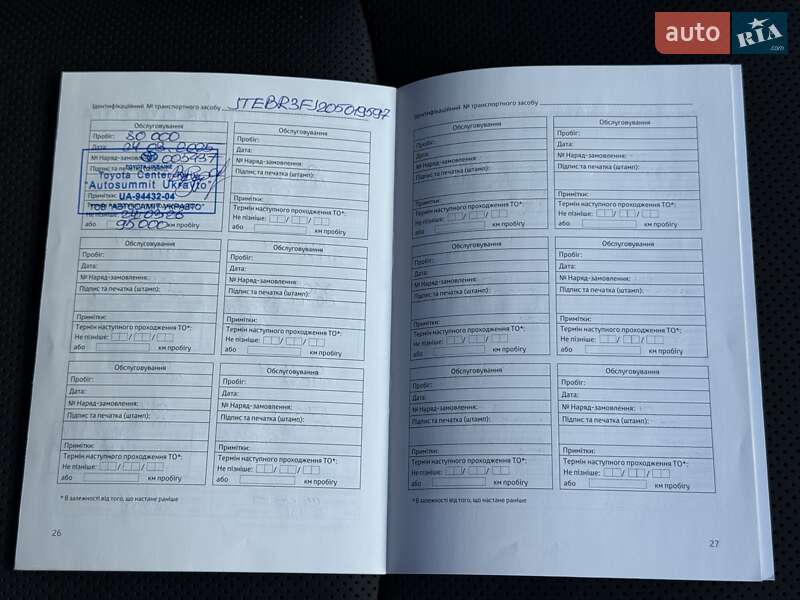 auto RIA .com
Ідентифікаційний № транспортного засобу JTEBR3FJ205019597
Обслуговування
Пробіг: 80 000
Дата:
№ Наряд-замовлення: 003437
Підпис та печатка
TOYOTA UKRAINE
Toyota Center Kyiv
"Autosummit Ukrayto"
Примітки: UA-94432-04
ТОВ "АВТОСАМІТ УКРАВТО"
Не пізніше:
або 95000 км пробігу
Обслуговування
Пробіг:
Дата:
№ Наряд-замовлення:
Підпис та печатка (штамп):
Примітки:
Термін наступного проходження ТО*:
Не пізніше: / /
або км пробігу
Обслуговування
Пробіг:
Дата:
№ Наряд-замовлення:
Підпис та печатка (штамп):
Примітки:
Термін наступного проходження ТО*:
Не пізніше: / /
або км пробігу
Обслуговування
Пробіг:
Дата:
№ Наряд-замовлення:
Підпис та печатка (штамп):
Примітки:
Термін наступного проходження ТО*:
Не пізніше: / /
або км пробігу
Обслуговування
Пробіг:
Дата:
№ Наряд-замовлення:
Підпис та печатка (штамп):
Примітки:
Термін наступного проходження ТО*:
Не пізніше: / /
або км пробігу
Обслуговування
Пробіг:
Дата:
№ Наряд-замовлення:
Підпис та печатка (штамп):
Примітки:
Термін наступного проходження ТО*:
Не пізніше: / /
або км пробігу
* В залежності від того, що настане раніше
26
Ідентифікаційний № транспортного засобу
Обслуговування
Пробіг:
Дата:
№ Наряд-замовлення:
Підпис та печатка (штамп):
Примітки:
Термін наступного проходження ТО*:
Не пізніше: / /
або км пробігу
Обслуговування
Пробіг:
Дата:
№ Наряд-замовлення:
Підпис та печатка (штамп):
Примітки:
Термін наступного проходження ТО*:
Не пізніше: / /
або км пробігу
Обслуговування
Пробіг:
Дата:
№ Наряд-замовлення:
Підпис та печатка (штамп):
Примітки:
Термін наступного проходження ТО*:
Не пізніше: / /
або км пробігу
Обслуговування
Пробіг:
Дата:
№ Наряд-замовлення:
Підпис та печатка (штамп):
Примітки:
Термін наступного проходження ТО*:
Не пізніше: / /
або км пробігу
Обслуговування
Пробіг:
Дата:
№ Наряд-замовлення:
Підпис та печатка (штамп):
Примітки:
Термін наступного проходження ТО*:
Не пізніше: / /
або км пробігу
Обслуговування
Пробіг:
Дата:
№ Наряд-замовлення:
Підпис та печатка (штамп):
Примітки:
Термін наступного проходження ТО*:
Не пізніше: / /
або км пробігу
* В залежності від того, що настане раніше
27